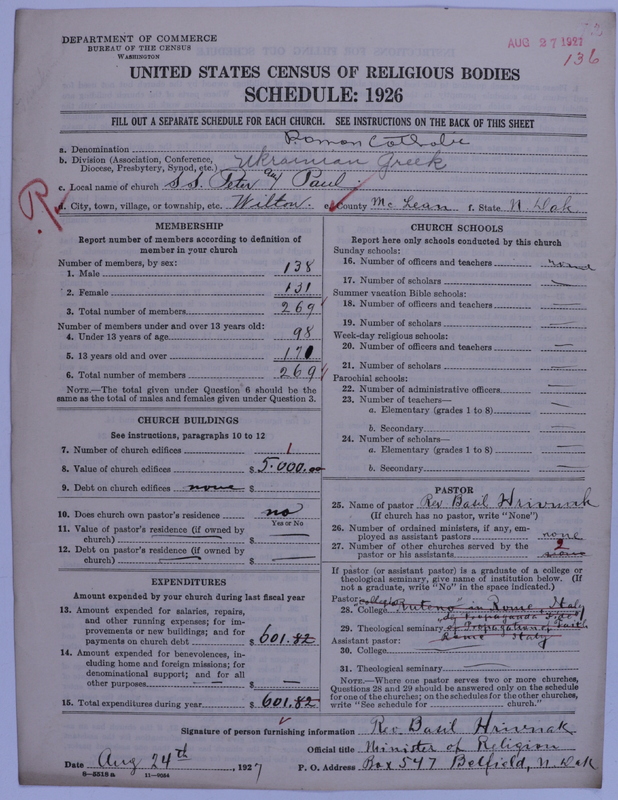 DEPARTMENT OF COMMERCE
BUREAU OF THE CENSUS
WASHINGTON
AUG 27 1927
136
UNITED STATES CENSUS OF RELIGIOUS BODIES
SCHEDULE: 1926
FILL OUT A SEPARATE SCHEDULE FOR EACH CHURCH. SEE INSTRUCTIONS ON THE BACK OF THIS SHEET
a. Denomination Roman Catholic
b. Division (Association, Conference, Diocese, Presbytery, Synod, etc.) Ukrainian Greek
c. Local name of church S.S. Peter and Paul.
R
d. City, town, village, or township, etc. Wilton. e. County Mc Lean f. State N. Dak
MEMBERSHIP
Report number of members according to definition of
member in your church
Number of members, by sex:
1. Male 138
2. Female 131
3. Total number of members 269
Number of members under and over 13 years old:
4. Under 13 years of age 98
5. 13 years old and over 171
6. Total number of members 269
NOTE.—The total given under Question 6 should be
same as the total of males and females given under Question 3.
CHURCH BUILDINGS
See instructions, paragraphs 10 to 12
7. Number of church edifices 1
8. Value of church edifices $ 5.000.00
9. Debt on church edifices none $
10. Does church own pastor's residence no
Yes or No
11. Value of pastor's residence (if owned by
church) $
12. Debt on pastor's residence (if owned by
church) $
EXPENDITURES
Amount expended by your church during last fiscal year
13. Amount expended for salaries, repairs,
and other running expenses; for im-
provements or new buildings; and for
payments on church debt $ 601.82
14. Amount expended for benevolences, in-
cluding home and foreign missions; for
denominational support; and for all
other purposes $ —
15. Total expenditures during year $ 601.82
CHURCH SCHOOLS
Report here only schools conducted by this church
Sunday schools:
16. Number of officers and teachers none
17. Number of scholars —
Summer vacation Bible schools:
18. Number of officers and teachers —
19. Number of scholars —
Week-day religious schools:
20. Number of officers and teachers —
21. Number of scholars —
Parochial schools:
22. Number of administrative officers —
23. Number of teachers—
a. Elementary (grades 1 to 8) —
b. Secondary —
24. Number of scholars—
a. Elementary (grades 1 to 8) —
b. Secondary —
PASTOR
25. Name of pastor Rev Basil Hrivnak
(If church has no pastor, write "None")
26. Number of ordained ministers, if any, em-
ployed as assistant pastors none
27. Number of other churches served by the
pastor or his assistants 2 none
If pastor (or assistant pastor) is a graduate of a college or
theological seminary, give name of institution below. (If
not a graduate, write "No" in the space indicated.)
Pastor:
28. College Ruteno in Rome, Italy
29. Theological seminary of Propagation of Faith
Assistant pastor: Rome Italy
30. College
31. Theological seminary
NOTE.—Where one pastor serves two or more churches,
Questions 28 and 29 should be answered only on the schedule
for one of the churches; on the schedules for the other churches,
write "See schedule for church."
Signature of person furnishing information Rev. Basil Hrivnak
Official title Minister of Religion
Date Aug 24th, 1927 P. O. Address Box 547 Belfield, N. Dak
8—5518a 11—9034